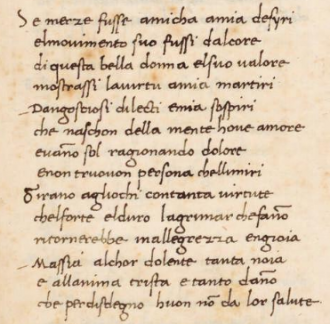 Se merze fusse amicha amia desyri
elmovimento suo fussi dalcore
di questa bella donna elsuo valore
mostrassi lavirtu amia martiri
Dangosciosi dilecti emia sospiri
che naschon della mente hove amore
evano sol ragionando dolore
enon truovon persona chellimiri
Girano agliochi contanta virtute
chelforte elduro lagrimar chefano
ritornerebbe inallegrezza engioia
Massia alchor dolente tanta noia
e allanima trista e tanto dano
che perdisdegno huon nō da lor salute